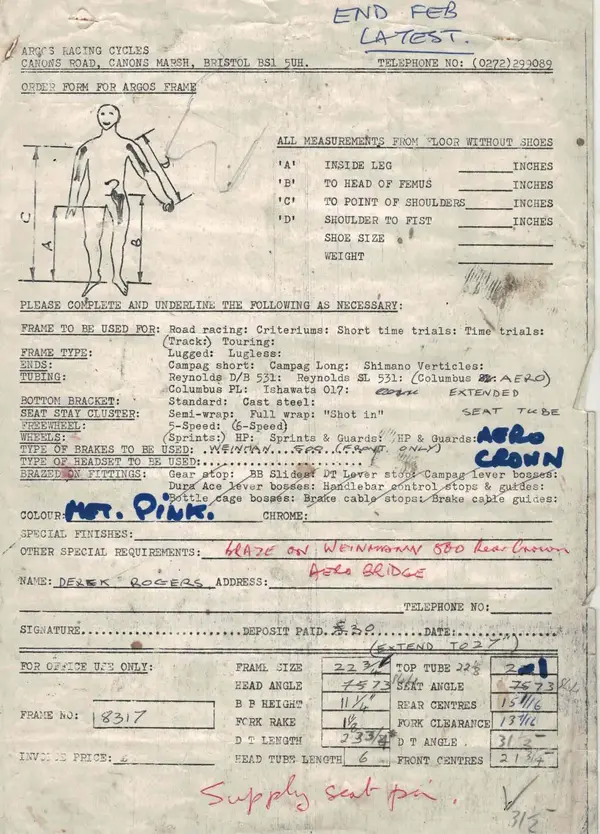 END FEB
LATEST.
ARGOS RACING CYCLES
CANONS ROAD, CANONS MARSH, BRISTOL BS1 5UH. TELEPHONE NO: (0272)299089
ORDER FORM FOR ARGOS FRAME
ALL MEASUREMENTS FROM FLOOR WITHOUT SHOES
'A' INSIDE LEG ______INCHES
'B' TO HEAD OF FEMUS ______INCHES
'C' TO POINT OF SHOULDERS______INCHES
'D' SHOULDER TO FIST ______INCHES
SHOE SIZE
WEIGHT
C A B
PLEASE COMPLETE AND UNDERLINE THE FOLLOWING AS NECESSARY:
FRAME TO BE USED FOR: Road racing: Criteriums: Short time trials: Time trials:
(Track:) Touring:
FRAME TYPE: Lugged: Lugless:
ENDS: Campag short: Campag Long: Shimano Verticles:
TUBING: Reynolds D/B 531: Reynolds SL 531: (Columbus AERO)
Columbus PL: Ishawata 017: EXTENDED
BOTTOM BRACKET: Standard: Cast steel:
SEAT STAY CLUSTER: Semi-wrap: Full wrap: "Shot in" SEAT TUBE
FREEWHEEL: 5-Speed: (6-Speed)
WHEELS: (Sprints:) HP: Sprints & Guards: HP & Guards: AERO
TYPE OF BRAKES TO BE USED: WEINMAN 500 (FRONT ONLY)
CROWN
TYPE OF HEADSET TO BE USED:
BRAZED ON FITTINGS: Gear stop: BB Slides: DT Lever stop: Campag lever bosses:
Dura Ace lever bosses: Handlebar control stops & guides:
Bottle cage bosses: Brake cable stops: Brake cable guides:
COLOUR: MET. PINK. CHROME:
SPECIAL FINISHES:
OTHER SPECIAL REQUIREMENTS: BRAZE ON WEINMANN 500 Rear Crown
AERO BRIDGE
NAME: DEREK ROGERS ADDRESS:
TELEPHONE NO:
SIGNATURE DEPOSIT PAID £30 DATE:
(EXTEND TO 27")
FOR OFFICE USE ONLY: FRAME SIZE 22 3/4 TOP TUBE 22 1/8 21
HEAD ANGLE 75 73 SEAT ANGLE 75 73
B B HEIGHT 11 1/4" REAR CENTRES 15 11/16
FRAME NO: 8317 FORK RAKE FORK CLEARANCE 13 7/16
D T LENGTH 23 3/4" D T ANGLE 31 5
INVOICE PRICE: £ HEAD TUBE LENGTH 6 FRONT CENTRES
Supply seat pin.
315